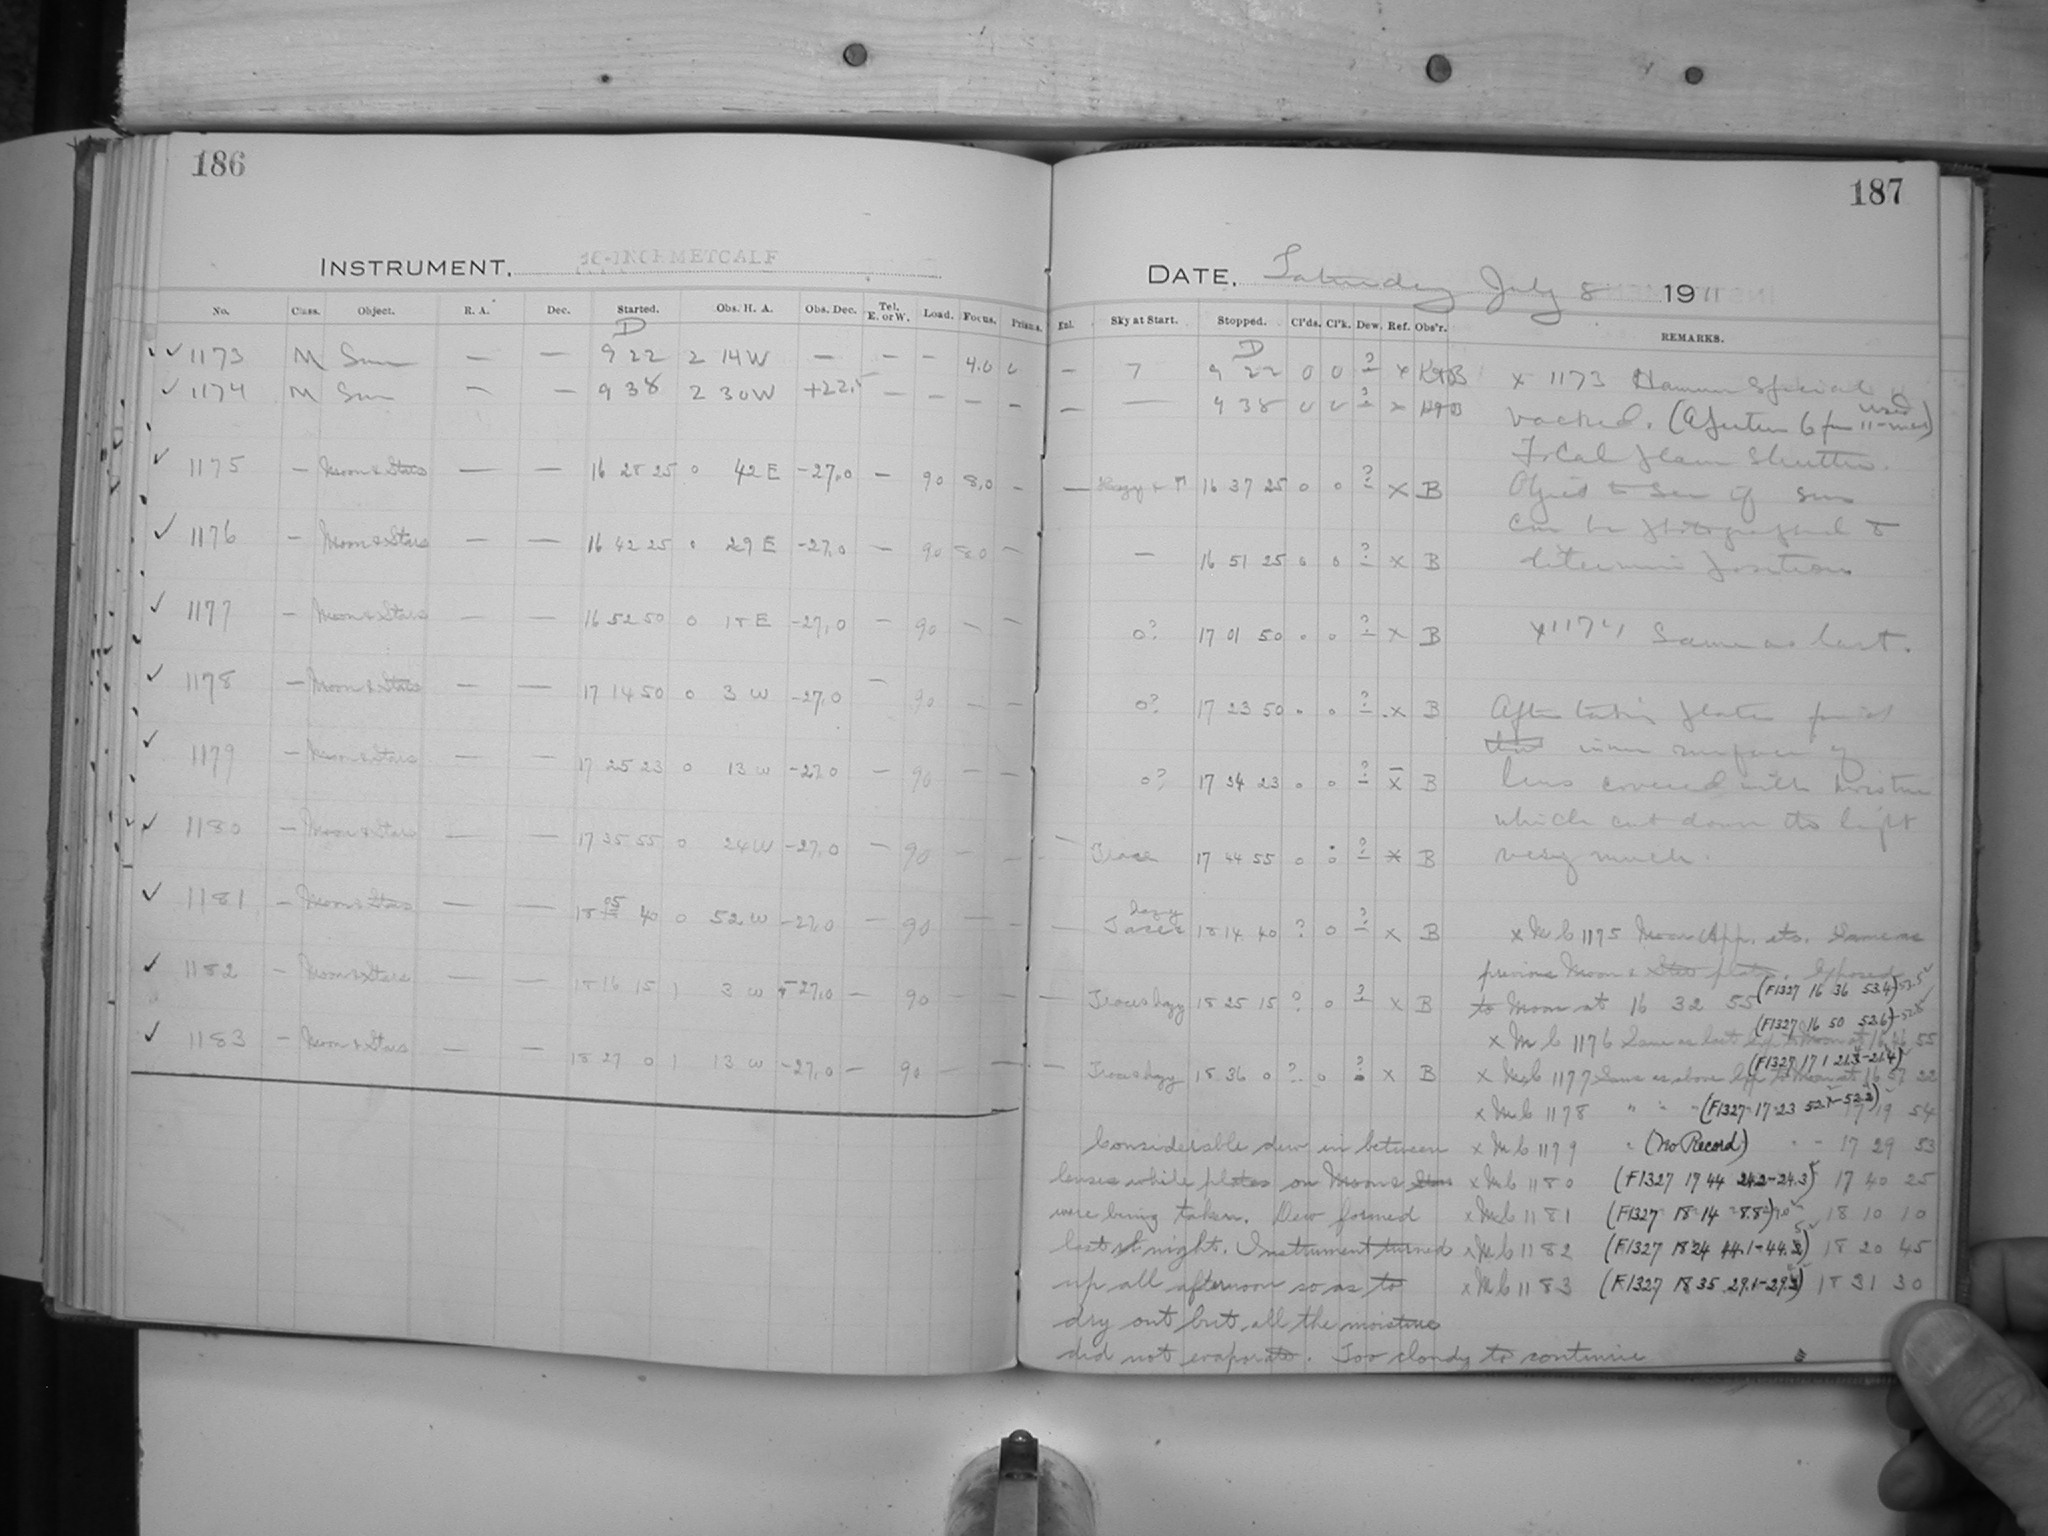 186
INSTRUMENT, 16-INCH METCALF
No. Class. Object. R. A. Dec. Started. Obs. H. A. Obs. Dec. Tel. E. or W. Load. Focus. Prisms.
D
1173 M Sun — — 9 22 2 14 W — — — 4.0 0
1174 M Sun — — 9 38 2 30 W +22.5 — — — —
1175 — Moon & Stars — — 16 28 25 0 42 E -27.0 — 90 8.0 —
1176 — Moon & Stars — — 16 42 25 0 29 E -27.0 — 90 8.0 —
1177 — Moon & Stars — — 16 52 50 0 18 E -27.0 — 90 — —
1178 — Moon & Stars — — 17 14 50 0 3 W -27.0 — 90 — —
1179 — Moon & Stars — — 17 25 23 0 13 W -27.0 — 90 — —
1180 — Moon & Stars — — 17 35 55 0 24 W -27.0 — 90 — —
1181 — Moon & Stars — — 18 05 40 0 52 W -27.0 — 90 — —
1182 — Moon & Stars — — 18 16 15 1 3 W -27.0 — 90 — —
1183 — Moon & Stars — — 18 27 0 1 13 W -27.0 — 90 — —
187
DATE, Saturday July 8 1911
Enl. Sky at Start. Stopped. Cl'ds. Cl'k. Dew. Ref. Obs'r. REMARKS.
D
— 7 9 22 0 0 ? x
— — 9 38 0 0 ? x
— Hazy 16 37 25 0 0 ? x B
— 16 51 25 0 0 ? x B
0? 17 01 50 0 0 ? x B
0? 17 23 50 0 0 ? x B
0? 17 34 23 0 0 ? x B
17 44 55 0 0 ? x B
hazy 18 14 40 ? 0 ? x B
hazy 18 25 15 ? 0 ? x B
hazy 18 36 0 ? 0 ? x B
x 1173 Hammer Special
backed. (Aperture 6 from used 11-mer)
Focal plane Shutter.
Object to see if sun
can be photographed to
determine position
x 1174 Same as last.
After taking plates found
that inner surface of
lens covered with moisture
which cut down the light
very much.
x M C 1175 Moon App. etc. Same as
previous Moon & Star plates. Exposed
to Moon at 16 32 55 (F1327 16 36 53.4) 53.5
x M C 1176 Same as last Exp to Moon at 16 46 55 (F1327 16 50 52.6)
x M C 1177 Same as above Exp to Moon at 16 57 22 (F1327 17 1 21.3-21.4)
x M C 1178 " " " (F1327 17 23 52.1-52.2) 17 19 54
x M C 1179 " (No Record) " " 17 29 53
x M C 1180 (F1327 17 44 24.2-24.3) 17 40 25
x M C 1181 (F1327 18 14 8.8) 18 10 10
x M C 1182 (F1327 18 24 44.1-44.2) 18 20 45
x M C 1183 (F1327 18 35 29.1-29.2) 18 31 30
Considerable dew in between
lenses while plates on Moon & Stars
were being taken. Dew formed
last night. Instrument turned
up all afternoon so as to
dry out but all the moisture
did not evaporate. Too cloudy to continue